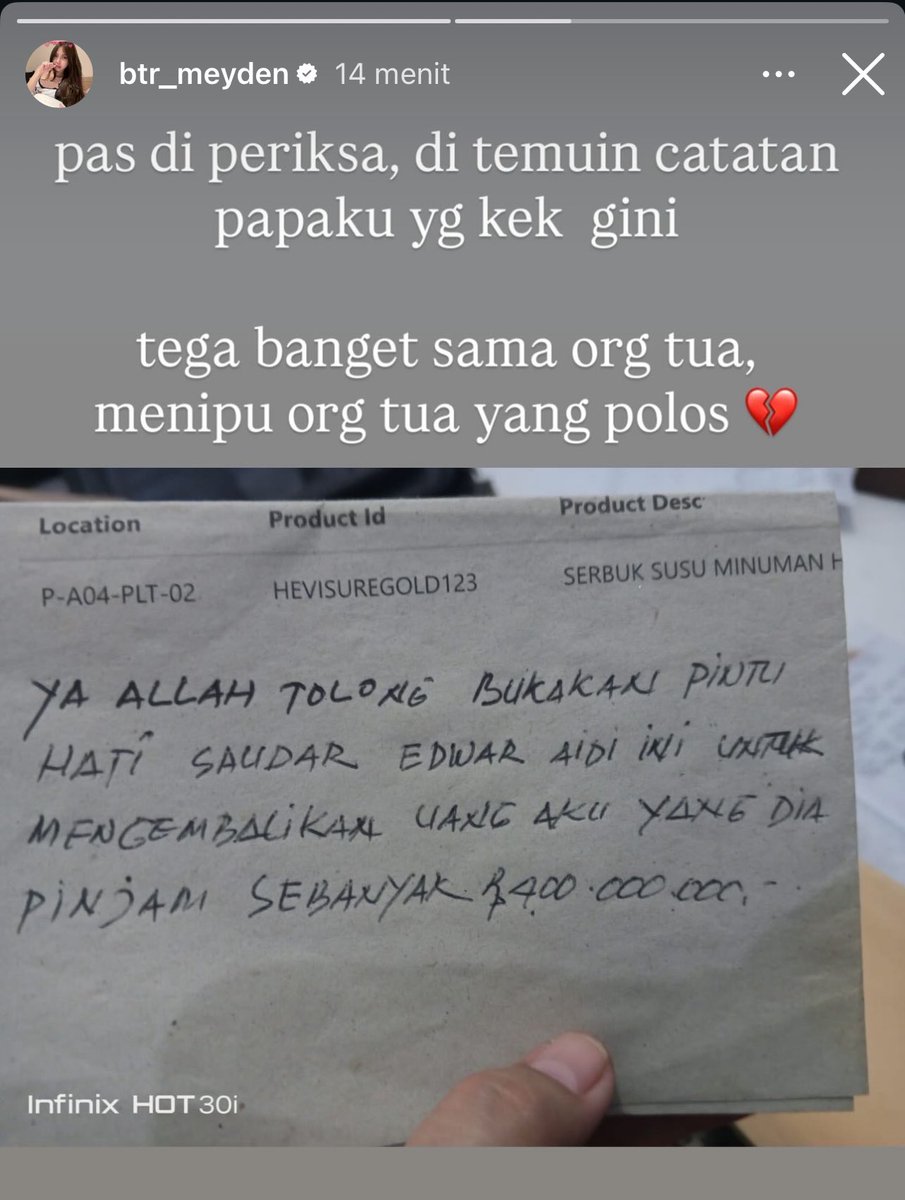 btr_meyden 14 menit
pas di periksa, di temuin catatan
papaku yg kek gini
tega banget sama org tua,
menipu org tua yang polos 💔
Location Product Id Product Desc
P-A04-PLT-02 HEVISUREGOLD123 SERBUK SUSU MINUMAN H
YA ALLAH TOLONG BUKAKAN PINTU
HATI SAUDAR EDWAR AIDI INI UNTUK
MENGEMBALIKAN UANG AKU YANG DIA
PINJAM SEBANYAK Rp400.000.000,-
Infinix HOT 30i